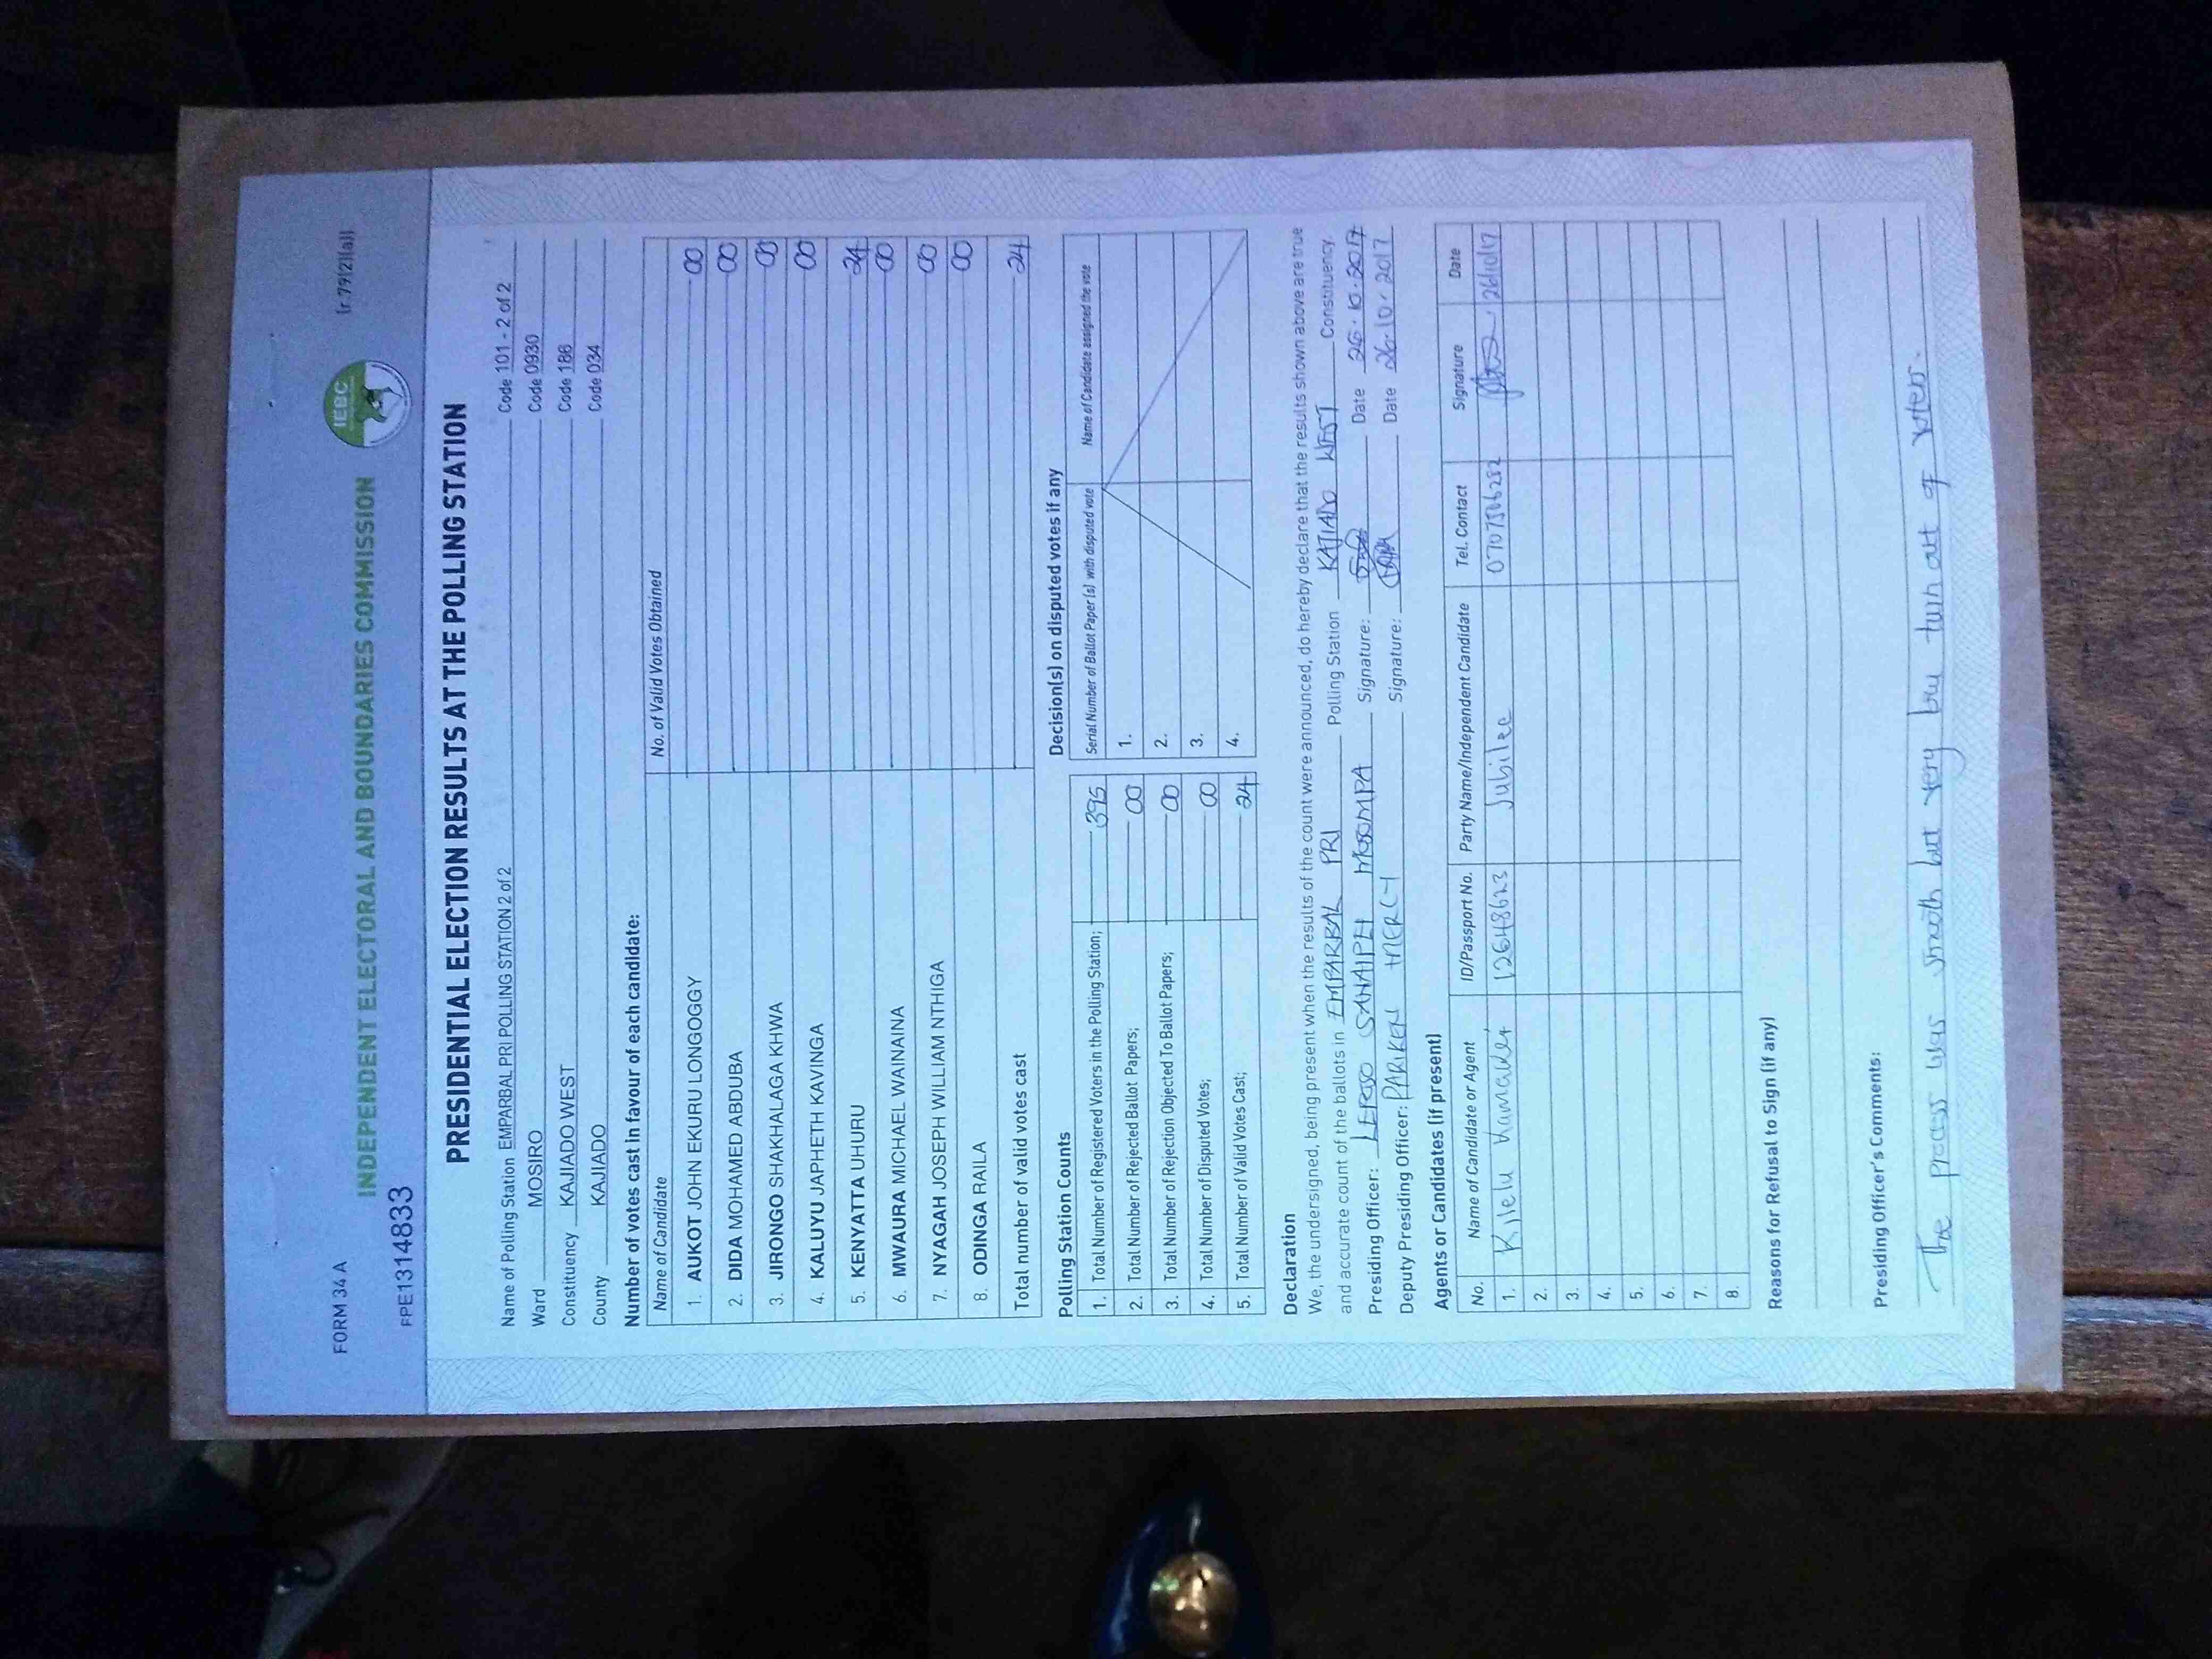 FORM 34 A
(r.79(2)(a))
INDEPENDENT ELECTORAL AND BOUNDARIES COMMISSION
IEBC
FPE1314833
PRESIDENTIAL ELECTION RESULTS AT THE POLLING STATION
Name of Polling Station EMPARBAL PRI POLLING STATION 2 of 2 Code 101 - 2 of 2
Ward MOSIRO Code 0930
Constituency KAJIADO WEST Code 186
County KAJIADO Code 034
Number of votes cast in favour of each candidate:
Name of Candidate No. of Valid Votes Obtained
1. AUKOT JOHN EKURU LONGOGGY 00
2. DIDA MOHAMED ABDUBA 00
3. JIRONGO SHAKHALAGA KHWA 00
4. KALUYU JAPHETH KAVINGA 00
5. KENYATTA UHURU 24
6. MWAURA MICHAEL WAINAINA 00
7. NYAGAH JOSEPH WILLIAM NTHIGA 00
8. ODINGA RAILA 00
Total number of valid votes cast 24
Polling Station Counts
1. Total Number of Registered Voters in the Polling Station; 395
2. Total Number of Rejected Ballot Papers; 00
3. Total Number of Rejection Objected To Ballot Papers; 00
4. Total Number of Disputed Votes; 00
5. Total Number of Valid Votes Cast; 24
Decision(s) on disputed votes if any
Serial Number of Ballot Paper(s) with disputed vote Name of Candidate assigned the vote
1.
2.
3.
4.
Declaration
We, the undersigned, being present when the results of the count were announced, do hereby declare that the results shown above are true
and accurate count of the ballots in EMPARBAL PRI Polling Station KAJIADO WEST Constituency.
Presiding Officer: SANAIPEI Signature: Date 26.10.2017
Deputy Presiding Officer: PARIKEN MERCY Signature: Date 26.10.2017
Agents or Candidates (if present)
No. Name of Candidate or Agent ID/Passport No. Party Name/Independent Candidate Tel. Contact Signature Date
1. Kilelu 12648623 Jubilee 26/10/17
2.
3.
4.
5.
6.
7.
8.
Reasons for Refusal to Sign (if any)
Presiding Officer's Comments:
The process was smooth but very low turn out of voters.